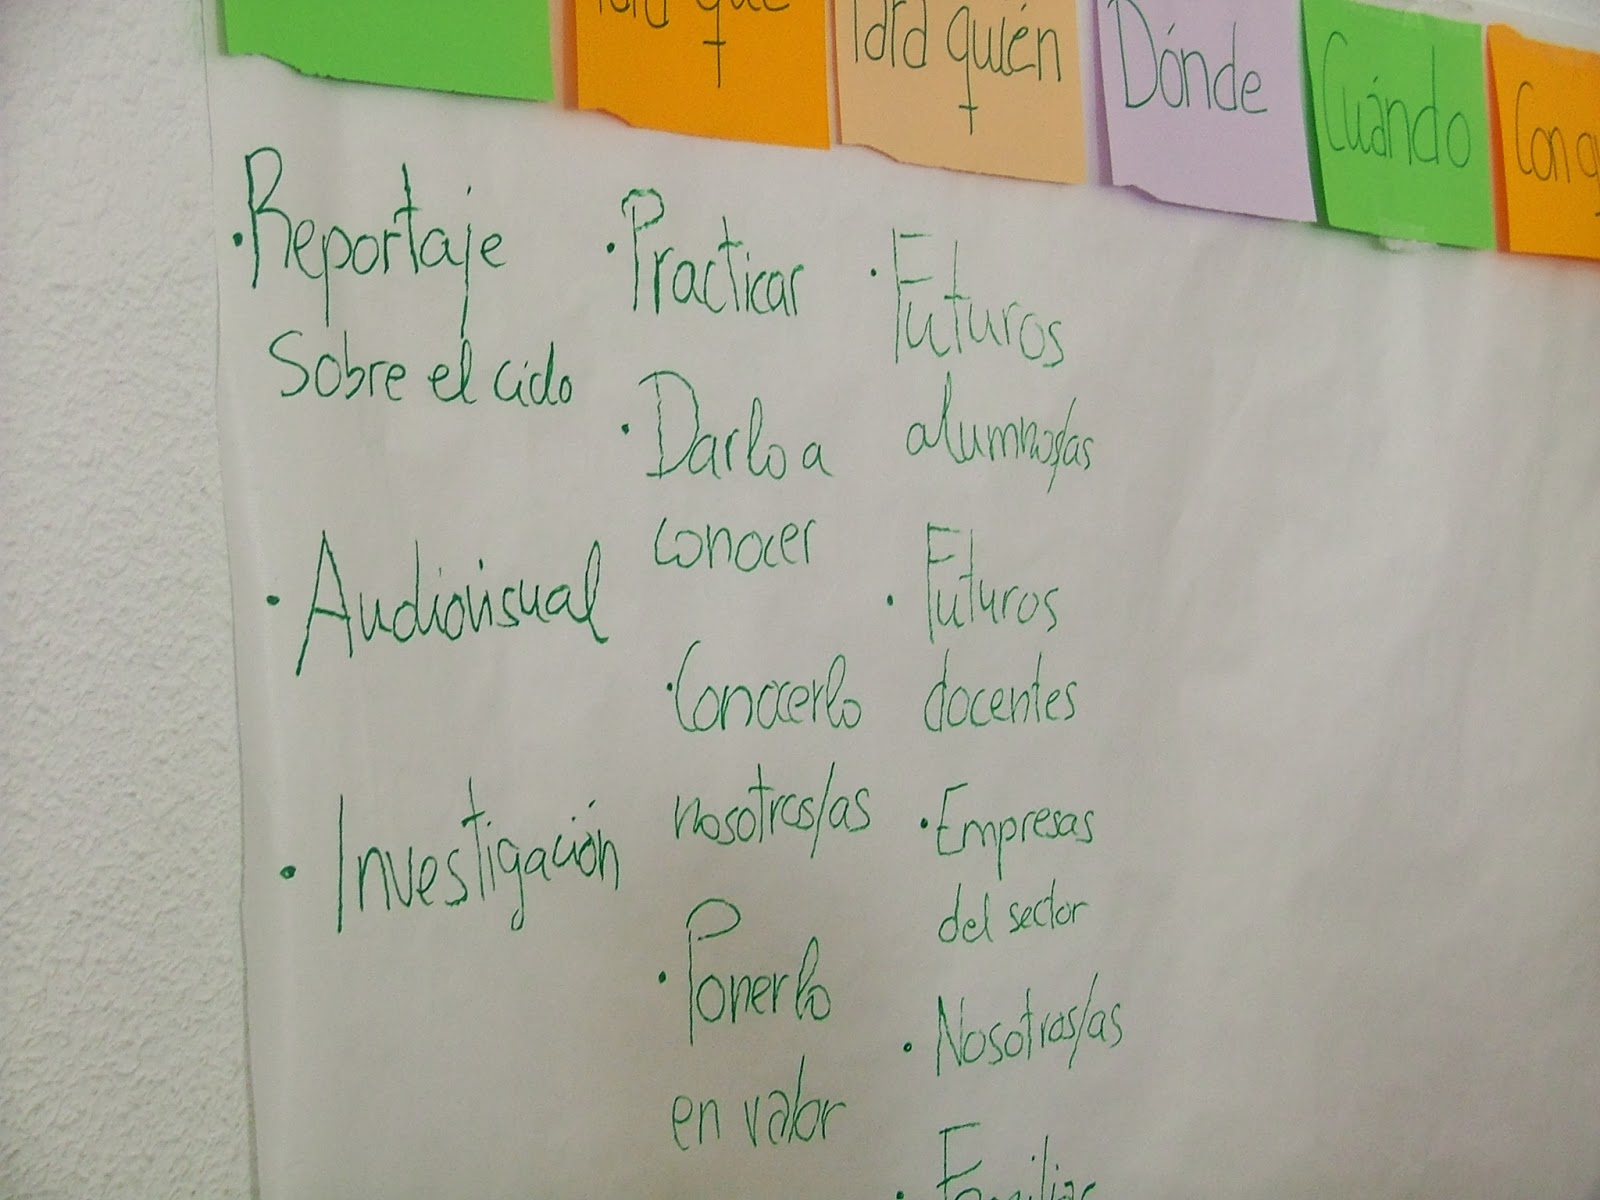 Para que
Para quién
Dónde
Cuándo
Con q
· Reportaje
Sobre el ciclo
· Audiovisual
· Investigación
· Practicar
· Darlo a
conocer
· Conocerlo
nosotros/as
· Ponerlo
en valor
· Futuros
alumnos/as
· Futuros
docentes
· Empresas
del sector
· Nosotros/as
· Familiar